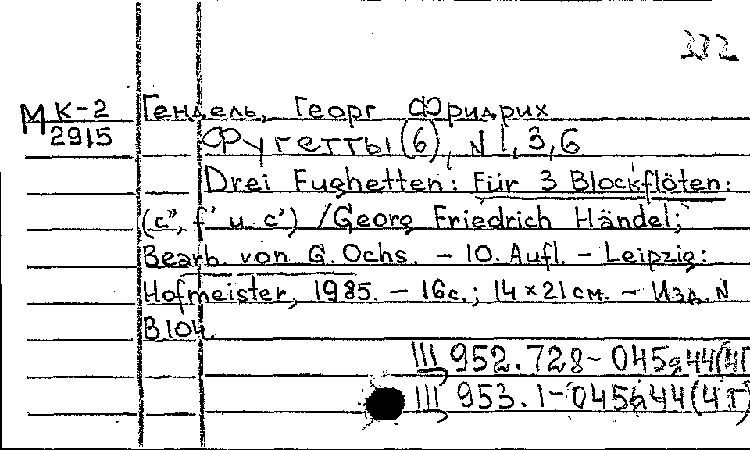 332
М К-2 Гендель, Георг Фридрих
2915 Фугетты (6), N 1, 3, 6
Drei Fughetten: Für 3 Blockflöten:
(c", f' и c') / Georg Friedrich Händel;
Bearb. von G. Ochs. – 10. Aufl. – Leipzig:
Hofmeister, 1985. – 16с.; 14×21см. – Изд. N
B104.
III 952.728-045
III 953.1-045